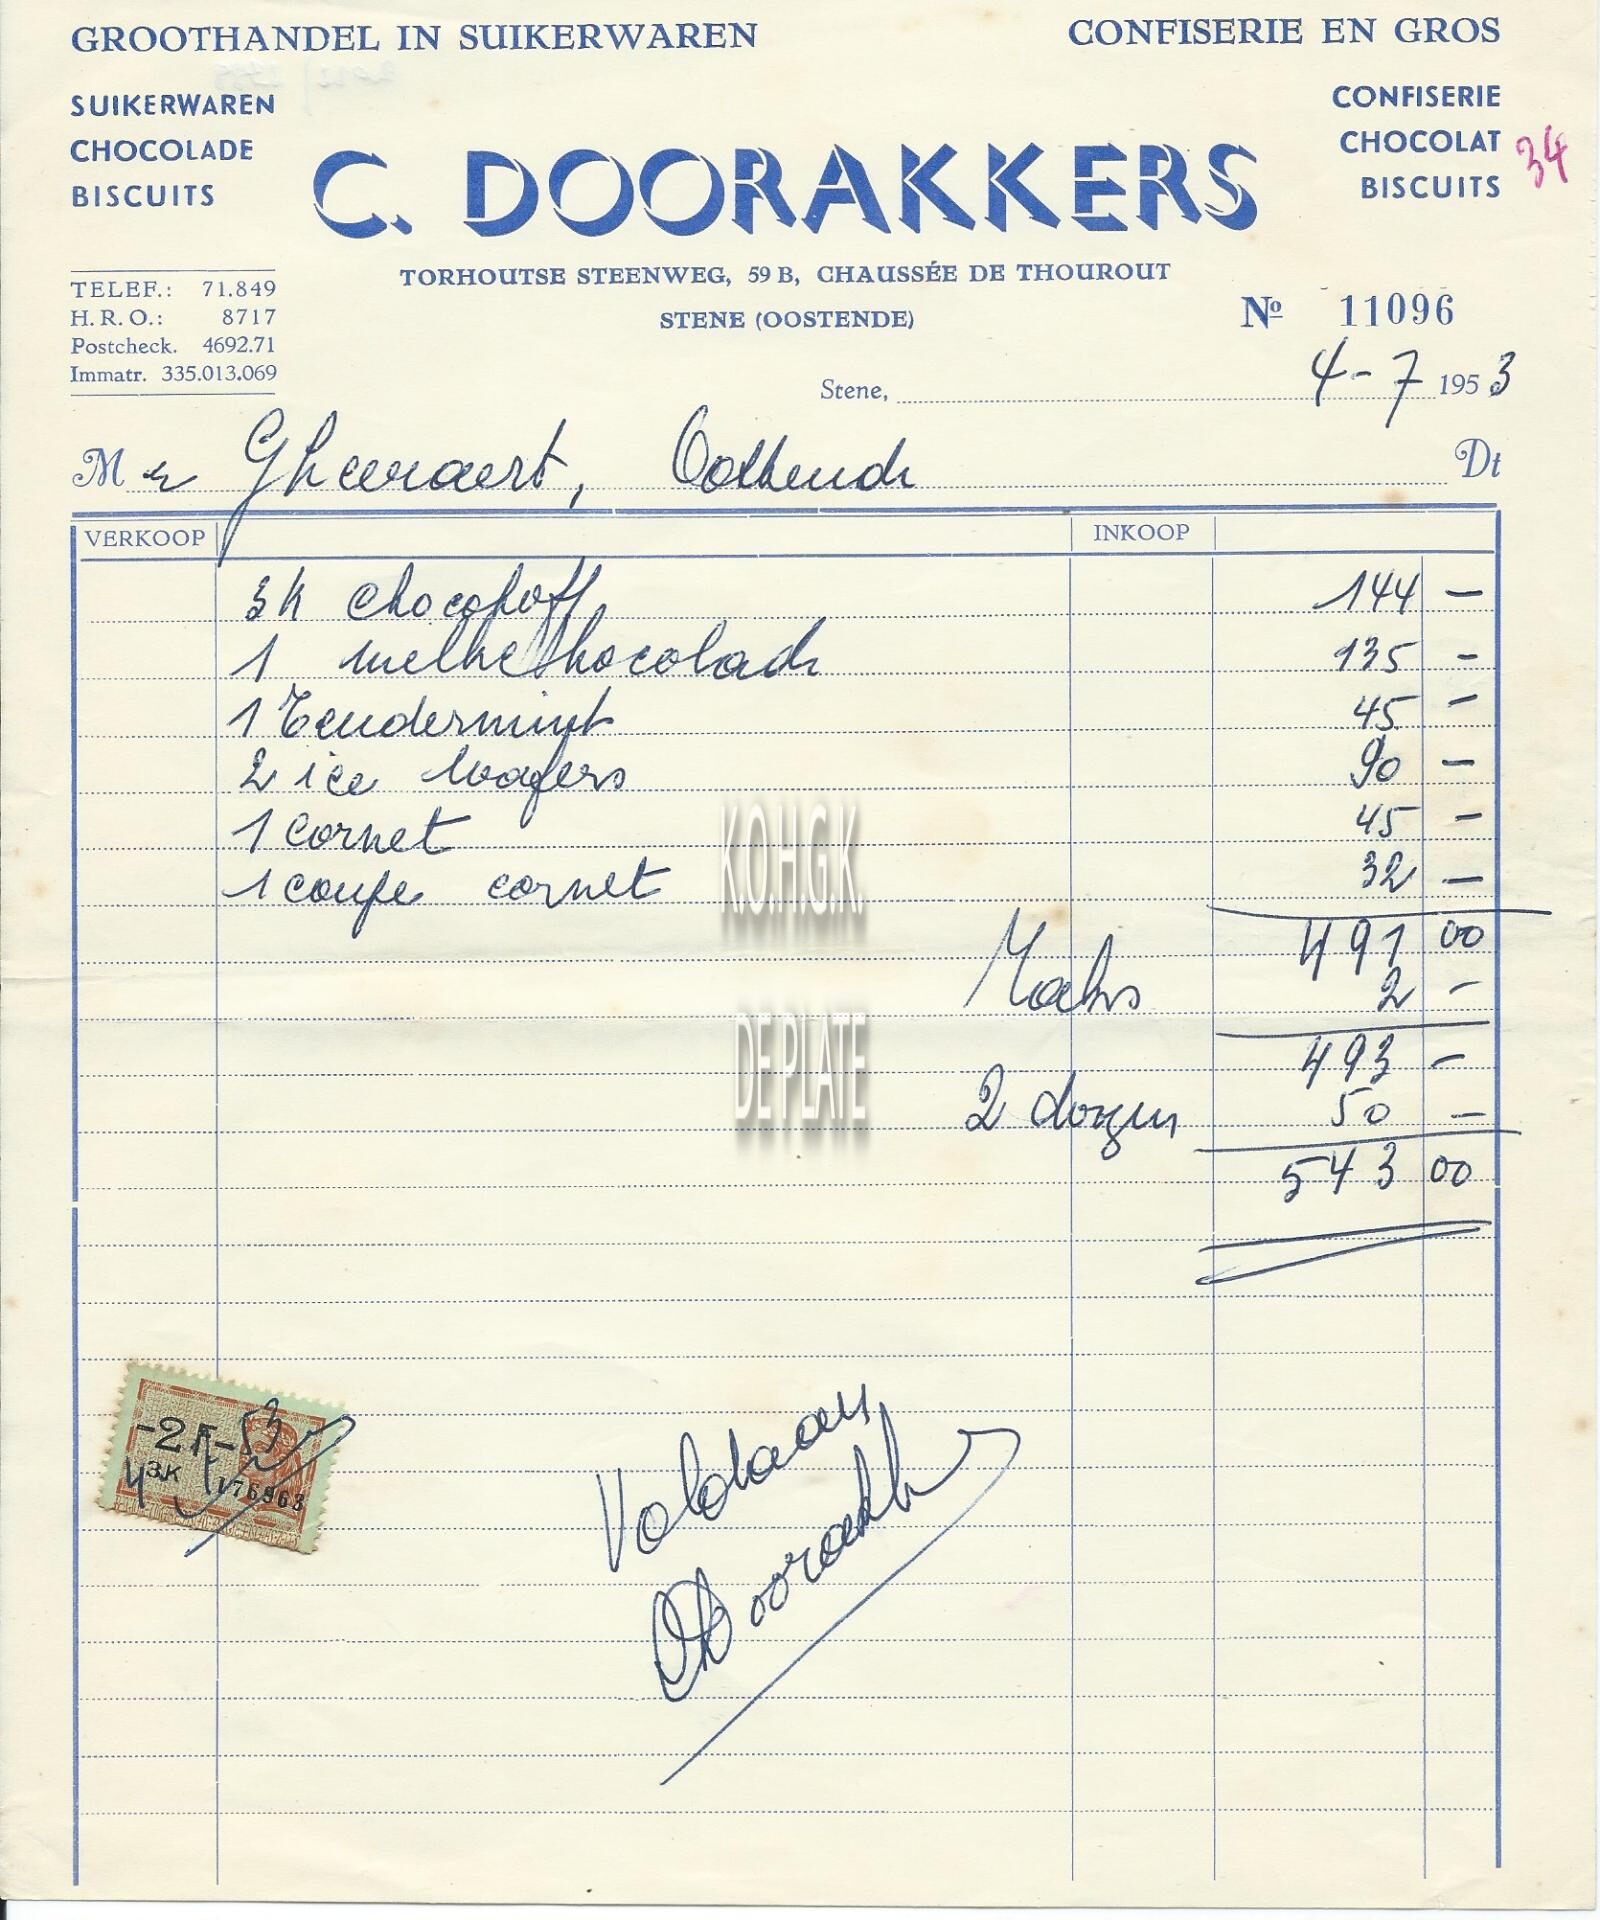 GROOTHANDEL IN SUIKERWAREN
CONFISERIE EN GROS
SUIKERWAREN
CHOCOLADE
BISCUITS
C. DOORAKKERS
CONFISERIE
CHOCOLAT
BISCUITS
34
TORHOUTSE STEENWEG, 59 B, CHAUSSÉE DE THOUROUT
STENE (OOSTENDE)
TELEF.: 71.849
H.R.O.: 8717
Postcheck. 4692.71
Immatr. 335.013.069
Nº 11096
Stene, 4-7 1953
Mr Gheeraert, Oostende Dt
VERKOOP INKOOP
3k 144 —
1 melkchocolade 135 -
1 Tendermint 45 -
2 ice wafers 90 —
1 cornet 45 -
1 coupe cornet 32 —
491 00
2 -
493 -
2 dozen 50 —
543 00
K.O.H.G.K.
DE PLATE
-2F-53
4 3.K 176963
Voldaan
Doorakkers